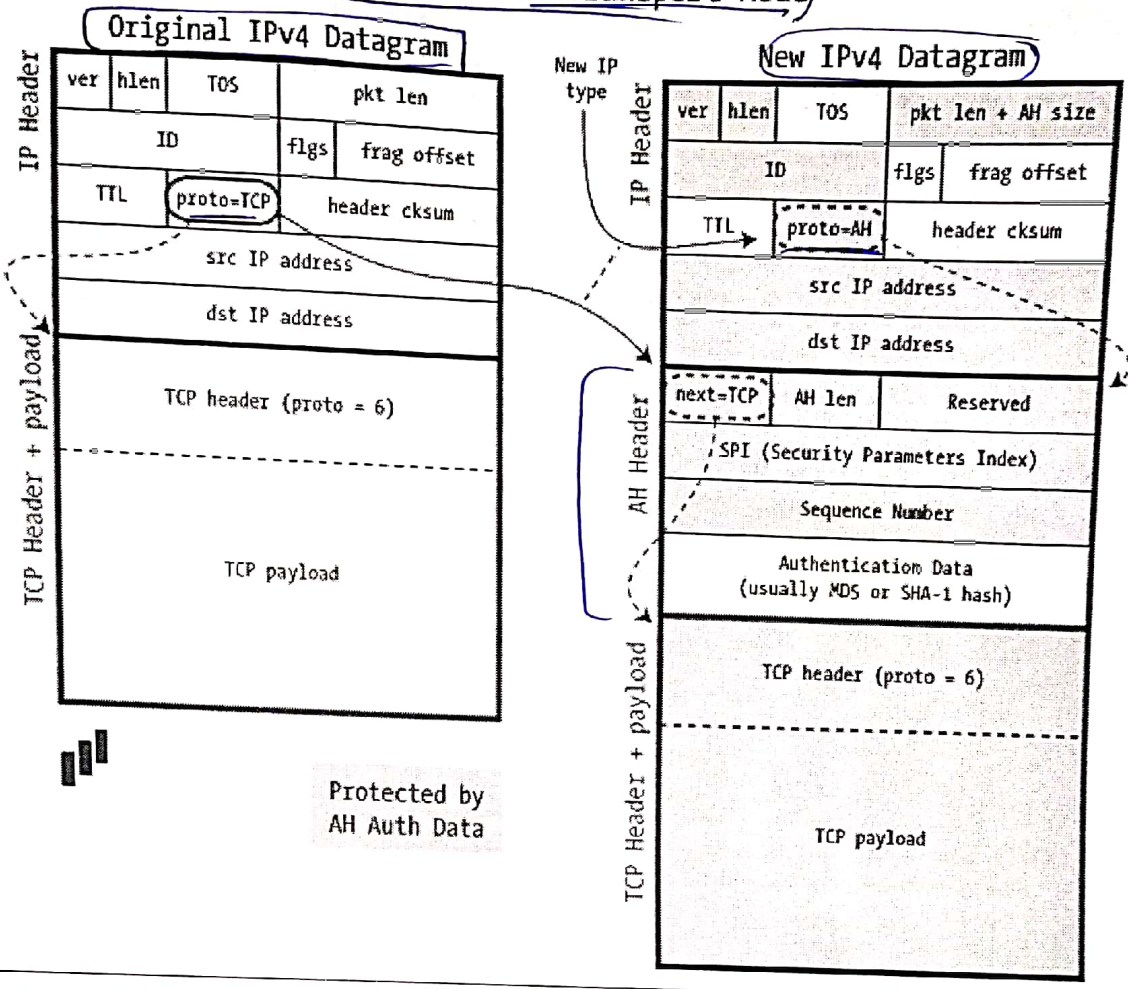 Original IPv4 Datagram
IP Header
ver hlen TOS pkt len
ID flgs frag offset
TTL proto=TCP header cksum
src IP address
dst IP address
TCP Header + payload
TCP header (proto = 6)
TCP payload
Protected by
AH Auth Data
New IP
type
New IPv4 Datagram
IP Header
ver hlen TOS pkt len + AH size
ID flgs frag offset
TTL proto=AH header cksum
src IP address
dst IP address
AH Header
next=TCP AH len Reserved
SPI (Security Parameters Index)
Sequence Number
Authentication Data
(usually MD5 or SHA-1 hash)
TCP Header + payload
TCP header (proto = 6)
TCP payload